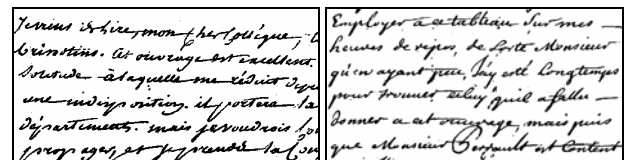 Je viens de lire, mon cher collègue,
Cet ouvrage est excellent.
Solitude à laquelle me réduit
une indisposition. il portera la
départements. mais je voudrois
propager, et je prends la
Employer a ce tableau Sur mes
heures de repos, de Sorte Monsieur
qu'en ayant peu, J'ay esté Longtemps
pour trouver celuy qu'il a fallu
donner a cet ouvrage, mais puis
que Monsieur Perrault est Content